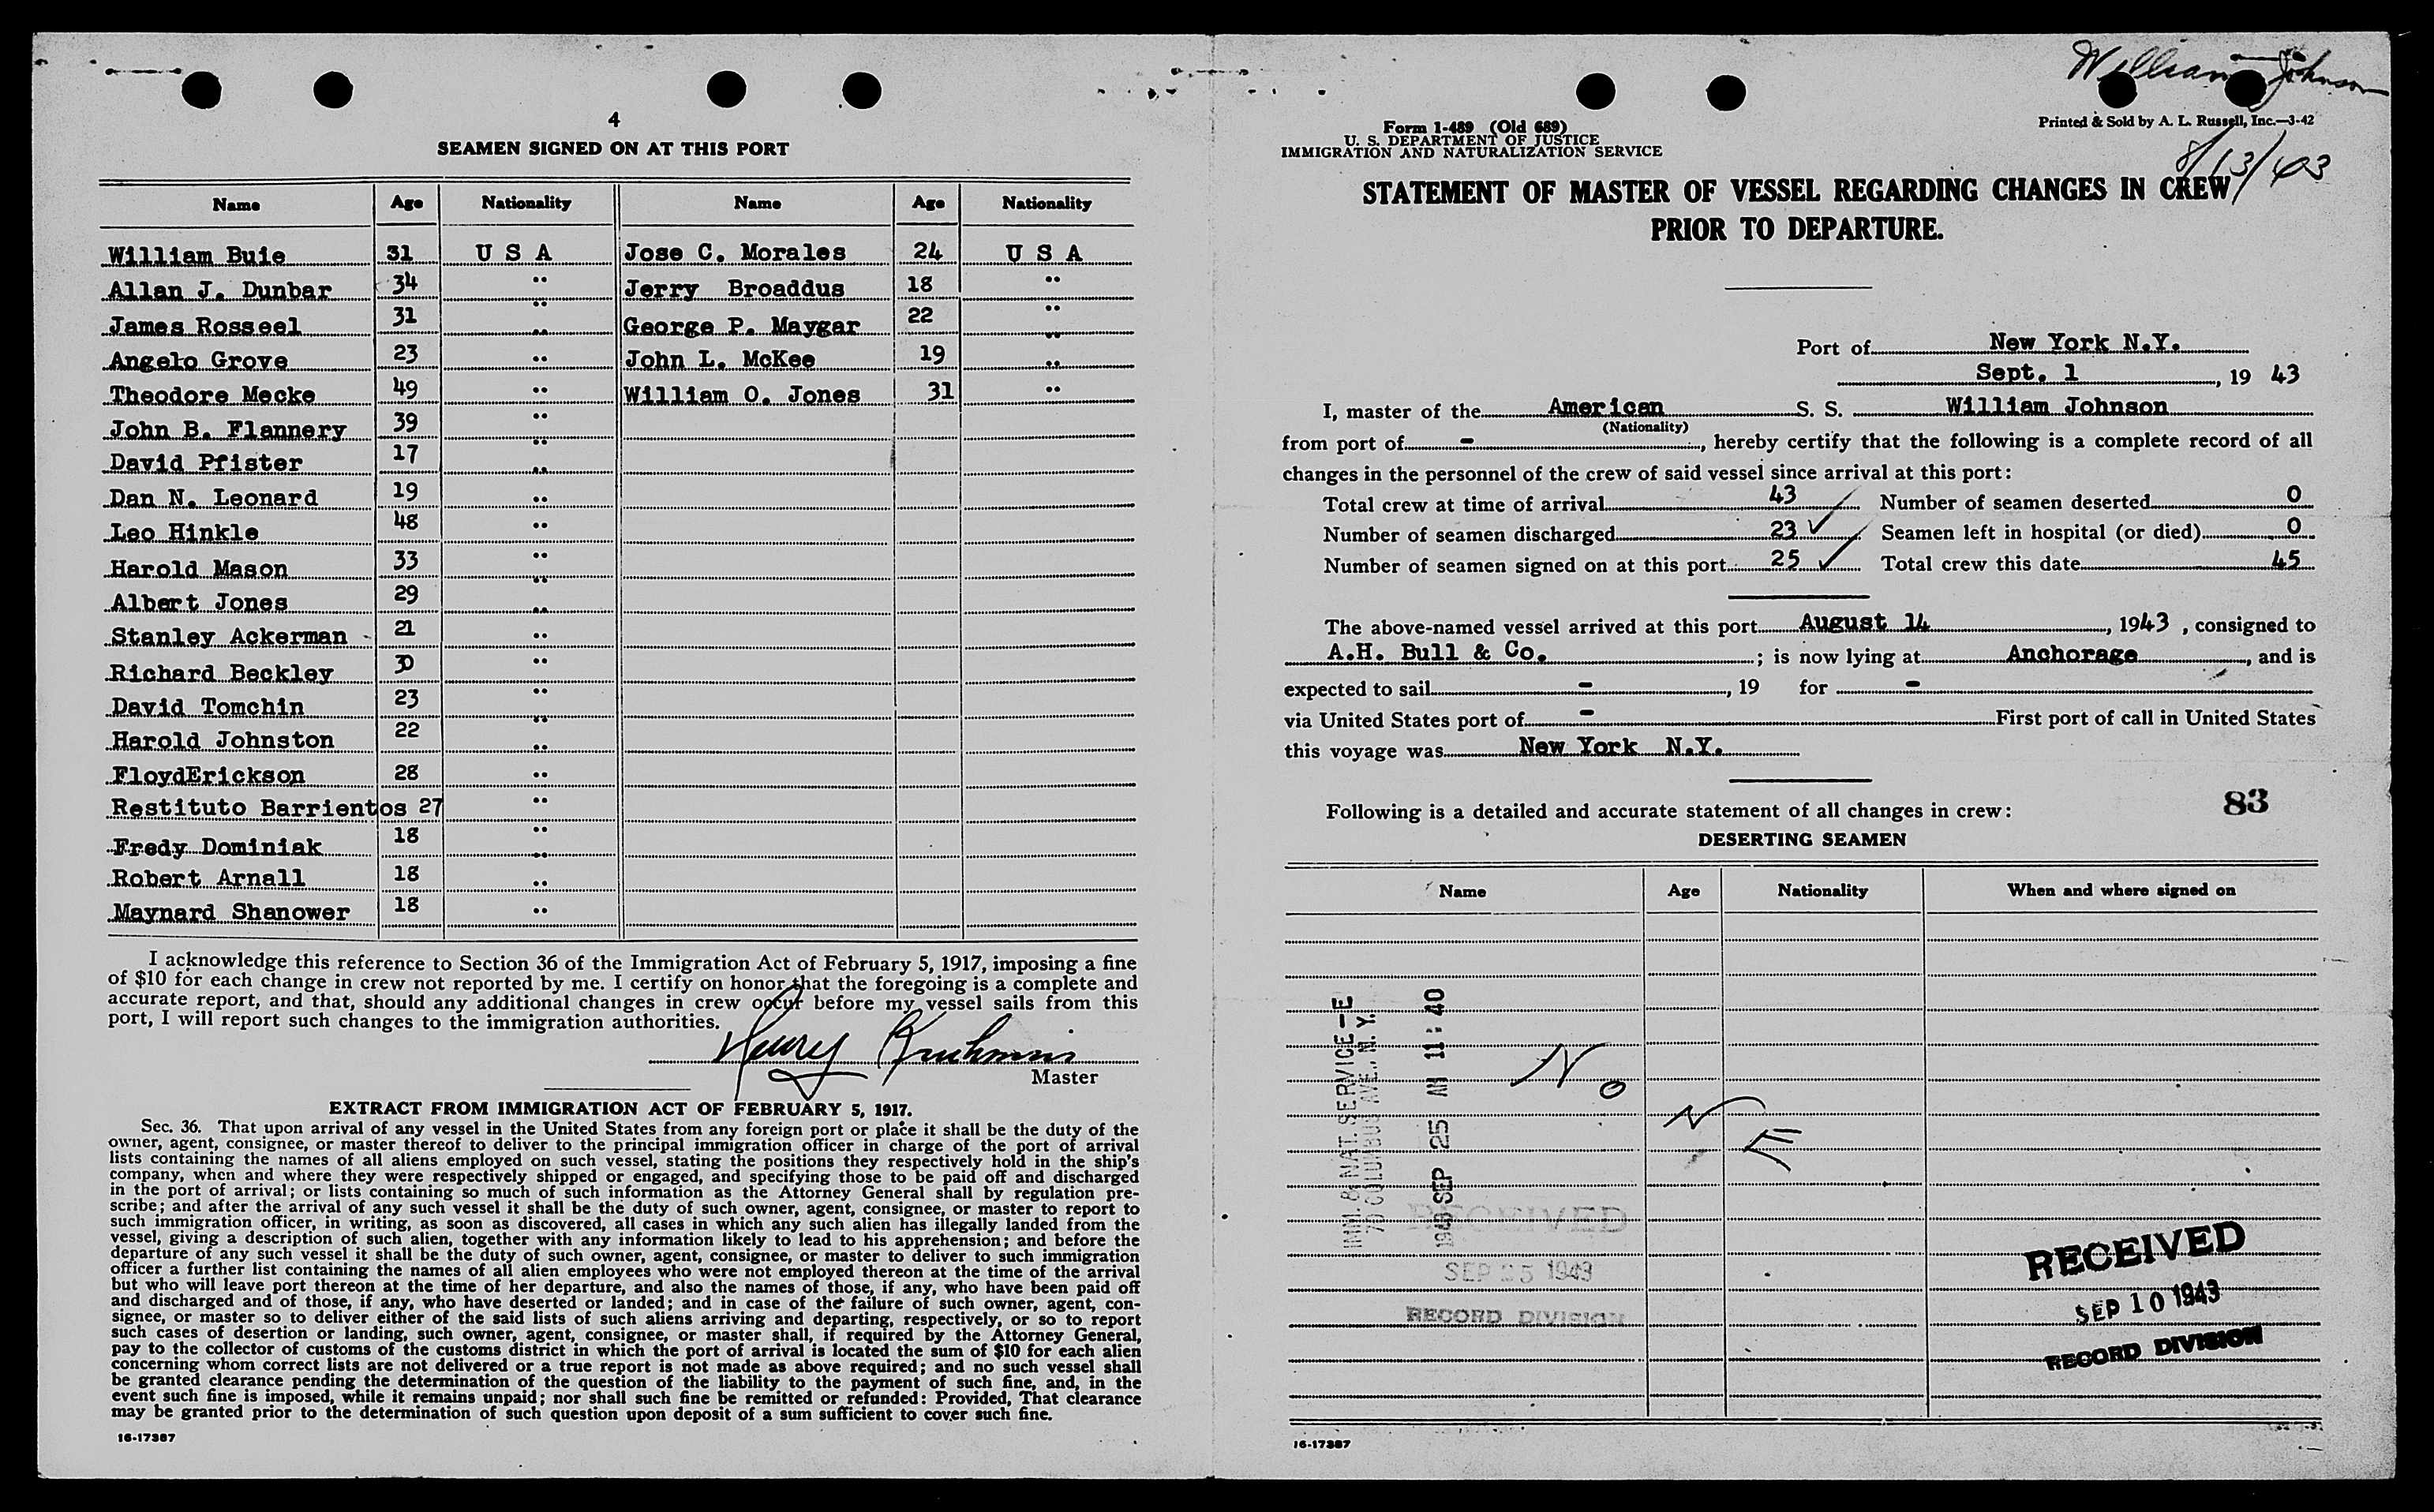 4
SEAMEN SIGNED ON AT THIS PORT
Name Age Nationality Name Age Nationality
William Buie 31 U S A Jose C. Morales 24 U S A
Allan J. Dunbar 34 " Jerry Broaddus 18 "
James Rosseel 31 " George P. Maygar 22 "
Angelo Grove 23 " John L. McKee 19 "
Theodore Mecke 49 " William O. Jones 31 "
John B. Flannery 39 "
David Pfister 17 "
Dan N. Leonard 19 "
Leo Hinkle 48 "
Harold Mason 33 "
Albert Jones 29 "
Stanley Ackerman 21 "
Richard Beckley 30 "
David Tomchin 23 "
Harold Johnston 22 "
FloydErickson 28 "
Restituto Barrientos 27 "
Fredy Dominiak 18 "
Robert Arnall 18 "
Maynard Shanower 18 "
I acknowledge this reference to Section 36 of the Immigration Act of February 5, 1917, imposing a fine
of $10 for each change in crew not reported by me. I certify on honor that the foregoing is a complete and
accurate report, and that, should any additional changes in crew occur before my vessel sails from this
port, I will report such changes to the immigration authorities.
Henry
Master
EXTRACT FROM IMMIGRATION ACT OF FEBRUARY 5, 1917.
Sec. 36. That upon arrival of any vessel in the United States from any foreign port or place it shall be the duty of the
owner, agent, consignee, or master thereof to deliver to the principal immigration officer in charge of the port of arrival
lists containing the names of all aliens employed on such vessel, stating the positions they respectively hold in the ship's
company, when and where they were respectively shipped or engaged, and specifying those to be paid off and discharged
in the port of arrival; or lists containing so much of such information as the Attorney General shall by regulation pre-
scribe; and after the arrival of any such vessel it shall be the duty of such owner, agent, consignee, or master to report to
such immigration officer, in writing, as soon as discovered, all cases in which any such alien has illegally landed from the
vessel, giving a description of such alien, together with any information likely to lead to his apprehension; and before the
departure of any such vessel it shall be the duty of such owner, agent, consignee, or master to deliver to such immigration
officer a further list containing the names of all alien employees who were not employed thereon at the time of the arrival
but who will leave port thereon at the time of her departure, and also the names of those, if any, who have been paid off
and discharged and of those, if any, who have deserted or landed; and in case of the failure of such owner, agent, con-
signee, or master so to deliver either of the said lists of such aliens arriving and departing, respectively, or so to report
such cases of desertion or landing, such owner, agent, consignee, or master shall, if required by the Attorney General,
pay to the collector of customs of the customs district in which the port of arrival is located the sum of $10 for each alien
concerning whom correct lists are not delivered or a true report is not made as above required; and no such vessel shall
be granted clearance pending the determination of the question of the liability to the payment of such fine, and, in the
event such fine is imposed, while it remains unpaid; nor shall such fine be remitted or refunded: Provided, That clearance
may be granted prior to the determination of such question upon deposit of a sum sufficient to cover such fine.
16-17387
William Johnson
Form I-489 (Old 689)
U. S. DEPARTMENT OF JUSTICE
IMMIGRATION AND NATURALIZATION SERVICE
Printed & Sold by A. L. Russell, Inc.—3-42
8/13/43
STATEMENT OF MASTER OF VESSEL REGARDING CHANGES IN CREW
PRIOR TO DEPARTURE.
Port of New York N.Y.
Sept. 1, 19 43
I, master of the American S. S. William Johnson
(Nationality)
from port of -, hereby certify that the following is a complete record of all
changes in the personnel of the crew of said vessel since arrival at this port:
Total crew at time of arrival 43 Number of seamen deserted 0
Number of seamen discharged 23 ✓ Seamen left in hospital (or died) 0
Number of seamen signed on at this port 25 ✓ Total crew this date 45
The above-named vessel arrived at this port August 14, 1943, consigned to
A.H. Bull & Co.; is now lying at Anchorage, and is
expected to sail -, 19 for -
via United States port of - First port of call in United States
this voyage was New York N.Y.
Following is a detailed and accurate statement of all changes in crew: 83
DESERTING SEAMEN
Name Age Nationality When and where signed on
NONE
IMM. & NAT. SERVICE-E
70 COLUMBUS AVE., N.Y.
1943 SEP 25 AM 11:40
RECEIVED
SEP 25 1943
RECORD DIVISION
RECEIVED
SEP 10 1943
RECORD DIVISION
16-17387